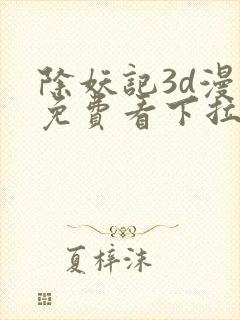 除妖記3d漫
免費看下拉
夏梓沫